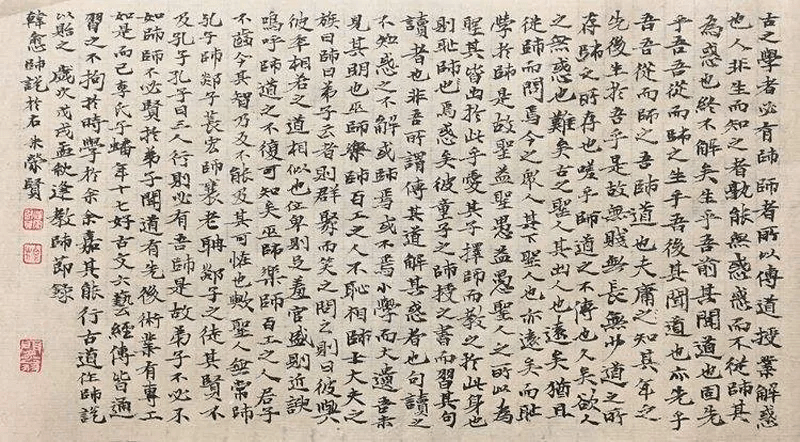 古之學者必有師師者所以傳道授業解惑
也人非生而知之者孰能無惑惑而不從師其
為惑也終不解矣生乎吾前其聞道也固先
乎吾吾從而師之生乎吾後其聞道也亦先乎
吾吾從而師之吾師道也夫庸之知其年之
先後生於吾乎是故無賤無長無少道之所
存師之所存也嗟乎師道之不傳也久矣欲人
之無惑也難矣古之聖人其出人也遠矣猶且
從師而問焉今之眾人其下聖人也亦遠矣而恥
學於師是故聖益聖愚益愚聖人之所以為
聖其皆出於此乎愛其子擇師而教之於此身也
則恥師也焉惑矣彼童子之師授之書而習其句
讀者也非吾所謂傳其道解其惑者也句讀之
不知惑之不解或師焉或不焉小學而大遺吾未
見其明也巫師樂師百工之人不恥相師士大夫之
族曰師曰弟子云者則群聚而笑之問之則曰彼與
彼年相若之道相似也位卑則足羞官盛則近諛
嗚呼師道之不復可知矣巫師樂師百工之人君子
不齒今其智乃反不能及其可怪也歟聖人無常師
孔子師郯子萇宏師襄老聃郯子之徒其賢不
及孔子孔子曰三人行則必有吾師是故弟子不必不
如師師不必賢於弟子聞道有先後術業有專工
如是而已李氏子蟠年十七好古文六藝經傳皆通
習之不拘於時學於余余嘉其能行古道作師說
以貽之 歲次戊戌孟秋逢教師節錄
韓愈師說於石米榮賢